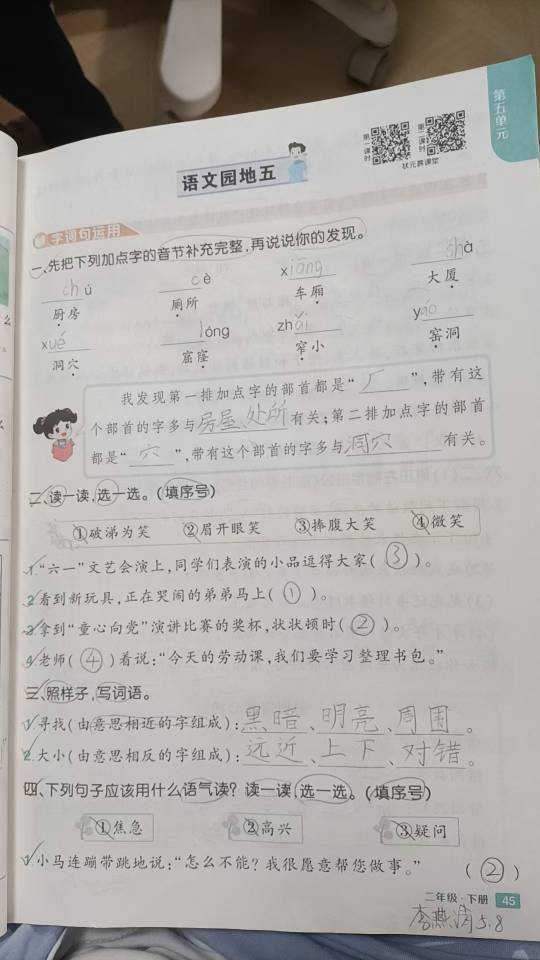 第五单元
第一课时
第二课时
状元慕课堂
语文园地五
字词句运用
一、先把下列加点字的音节补充完整,再说说你的发现。
chú cè xiāng shà
厨房 厕所 车厢 大厦
xué lóng zhǎi yáo
洞穴 窟窿 窄小 窑洞
我发现第一排加点字的部首都是“厂”,带有这
个部首的字多与房屋、处所有关;第二排加点字的部首
都是“穴”,带有这个部首的字多与洞穴有关。
二、读一读,选一选。(填序号)
①破涕为笑 ②眉开眼笑 ③捧腹大笑 ④微笑
1.“六一”文艺会演上,同学们表演的小品逗得大家(③)。
2.看到新玩具,正在哭闹的弟弟马上(①)。
3.拿到“童心向党”演讲比赛的奖杯,状状顿时(②)。
4.老师(④)着说:“今天的劳动课,我们要学习整理书包。”
三、照样子,写词语。
1.寻找(由意思相近的字组成):黑暗、明亮、周围。
2.大小(由意思相反的字组成):远近、上下、对错。
四、下列句子应该用什么语气读?读一读,选一选。(填序号)
①焦急 ②高兴 ③疑问
1.小马连蹦带跳地说:“怎么不能?我很愿意帮您做事。” (②)
二年级·下册 45
5.8